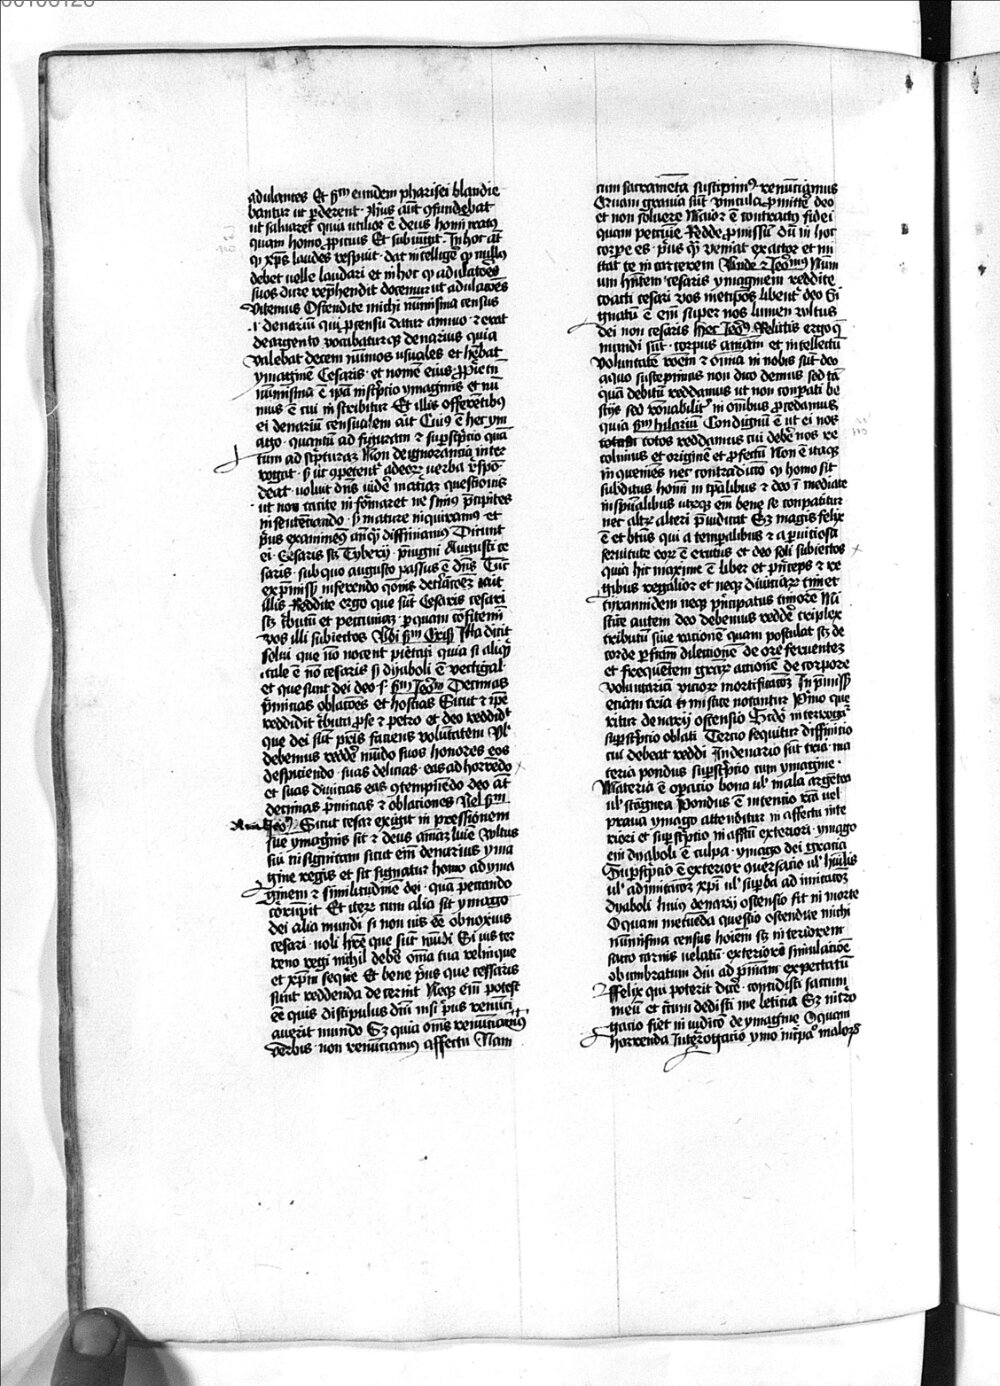 adulantes Et scdm eundem pharisei blandie
bantur ut pderent xpus aut 9fundebat
ut saluaret quia utilior e deus homi iratus
quam homo ppicius Et subiungit In hoc at
q xpus laudes respuit dat intellige q nullus
debet uelle laudari et in hoc q adulatoes
suos dure rephendit docemur ut adulacoes
vitemus Ostendite michi numisma census
.i. denariu qui p censu datur annuo et erat
de argento vocabaturqz denarius quia
valebat decem numos usuales et hebat
ymagine Cesaris et nome eius Proprie eni
numisma e ipa inscpcio ymaginis et nu
mus e cui inscribitur Et illis offeretibus
ei denariu censualem ait Cuius e hec ym
ago quantu ad figuram et supscpcio qua
tum ad scpturaz Non de ignorancia inter
rogat s ut 9petent adeoz uerba respo
deat uoluit dns uidere maliciaz questionis
ut non tacite informaret ne simus pcipites
in sentenciando s mature inquiramus et
pus examinem anqz diffiniamus Dicunt
ei Cesaris scz Tyberij priuigni Augusti ce
saris sub quo augusto passus e dns Tuc
ex pmissis inferendo qonis declaracoez ait
illis Reddite ergo que sut Cesaris cesari
scz tbutu et pecuniaz p quam cofitemi
vos illi subiectos Ubi scdm Cris Illa dicit
solui que no nocent pietati quia si aliqd
tale e no cesaris s dyaboli e vectigal
et que sunt dei deo .s. scdm Jeom Decimas
pmicias oblacoes et hostias Sicut et ipe
reddidit tbuta p se et petro et deo reddidit
que dei sut pris faciens volutatem Vl
debemus reddere mudo suos honores eos
despiciendo suas delicias eas ad horredo
et suas diuicias eas 9tempnedo deo at
decimas pmicias et oblationes Vel scdm
Sicut cesar exigit impressionem
sue ymaginis sic et deus amaz luie vultus
sui insignitam sicut em denarius yma
gine regis et sic signatur homo ad yma
ginem et similitudine dei qua peccando
corupit Et iteru cum alia sit ymago
dei alia mundi si non uis ee obnoxius
cesari noli here que sut mudi Si uis ter
reno regi nichil debere oma tua relinque
et xpm seque Et bene pus que cessaris
sunt reddenda decernit Neqz em potest
ee quis discipulus dni nisi pus renuci
auerit mundo Sz quia oms renuciamus
verbis non renuciamus affectu Nam
cum sacrameta suscipimus renuciamus
Quam grauia sut vincula pmitte deo
et non soluere Maior e contractus fidei
quam peccunie Redde pmissu du in hoc
corpe es pus qz veniat exactor et mi
ttat te in carcerem Vnde et Jeomus Num
um hntem cesaris ymaginem reddite
coacti cesari vos metipos libenter deo Si
gnatu e em super nos lumen vultus
dei non cesaris Hec Jeo Relictis ergo q
mundi sut corpus amam et intellectu
voluntate roem et omia in nobis sut deo
a quo suscepimus non dico demus sed ta
qua debitu reddamus ut non conpati be
stijs sed ronabilit in omibus pcedamus
quia scdm hilariu Condignu e ut ei nos
totos reddamus cui debere nos re
colimus et origine et pfectu Non e itaqz
inqueniens nec contradictio q homo sit
subditus homi in tpalibus et deo immediate
in spualibus utrqz em bene se conpatitur
nec altru alteri piudicat Sz magis felix
e et btus qui a tempalibus et a perniciosa
seruitute eor e erutus et deo soli subiectus
quia hic maxime e liber et pnceps et re
gibus regalior et neqz diuiciaru timet
tyrannidem neqz pncipatus timore Mi
stice autem deo debemus redde triplex
tributu siue racione quam postulat scz de
corde pfectam dilectione de ore feruentez
et frequetem graz actione de corpore
voluntaria vicior mortificacoz In pmissis
eciam tria mistice notantur Primo que
ritur denarij ostensio Scdo interroga
supscpcio oblati Tercio sequitur diffinitio
cui debeat reddi In denario sut tria ma
teria pondus supscpcio cum ymagine
Materia e opacio bona ul mala argetea
ul stagnea Pondus e intencio recta uel
praua ymago attenditur in affectu inte
riori et supscpcio in affectu exteriori ymago
em dyaboli e culpa ymago dei gracia
Supscpcio e exterior 9uersacio ul humilis
ul ad imitacoz xpi ul supba ad imitacoz
dyaboli huius denarij ostensio fit in morte
O quam metueda questio ostendite michi
numisma census hoiem scz interiorem
sacco carnis uelatu exteriore simulacoe
obumbratum diu ad pniam expectatu
Felix qui poterit dicere concidisti saccum
meu et circumdedisti me leticia Sz interro
gacio fiet in iudicio de ymagine O quam
horrenda Interrogacio ymo increpacio malorum